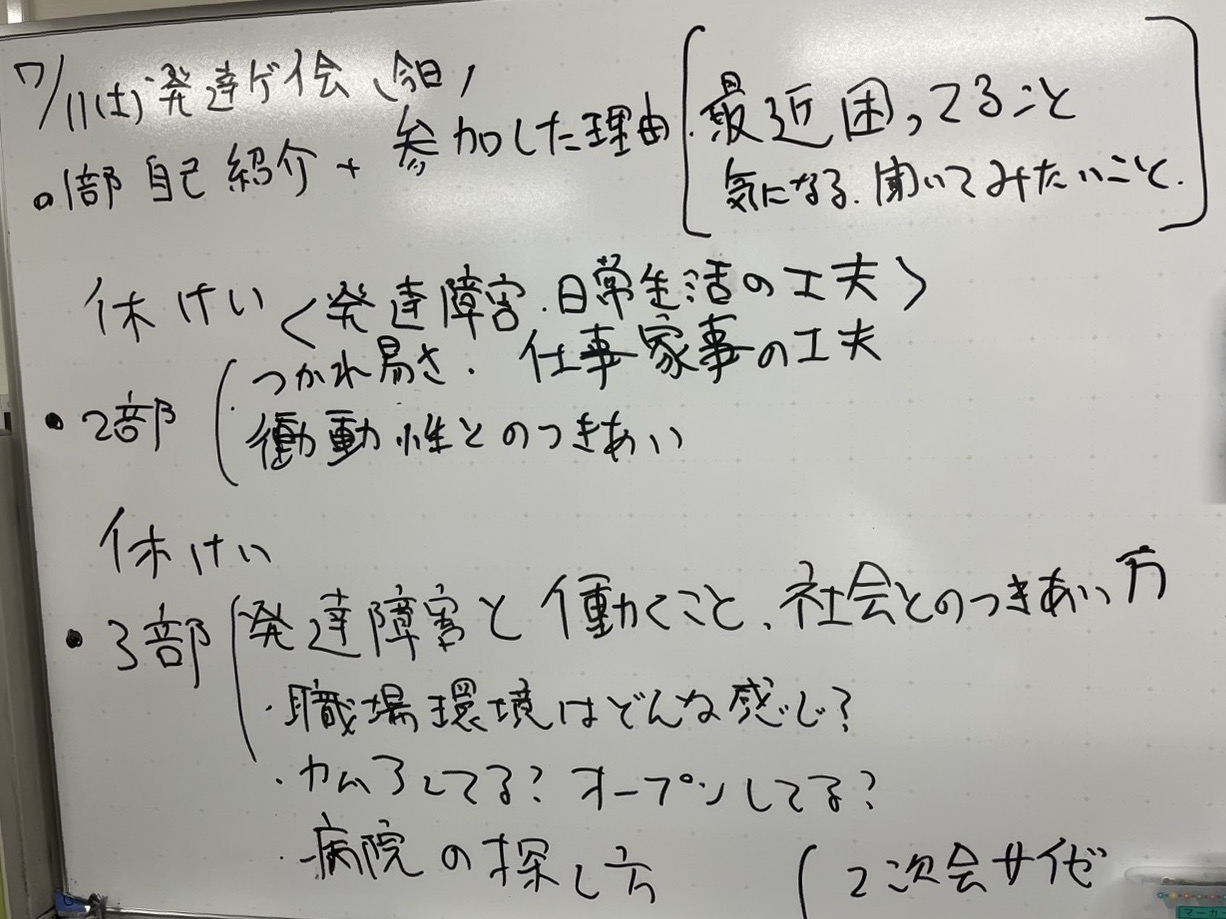 7/11(土)発達ゲイ会
・1部 自己紹介 + 参加した理由
最近困ってること
気になる.聞いてみたいこと.
休けい <発達障害.日常生活の工夫>
・2部
つかれ易さ. 仕事家事の工夫
衝動性とのつきあい
休けい
・3部 発達障害と働くこと、社会とのつきあい方
・職場環境はどんな感じ?
・カムアしてる?オープンしてる?
・病院の探し方
(2次会サイゼ